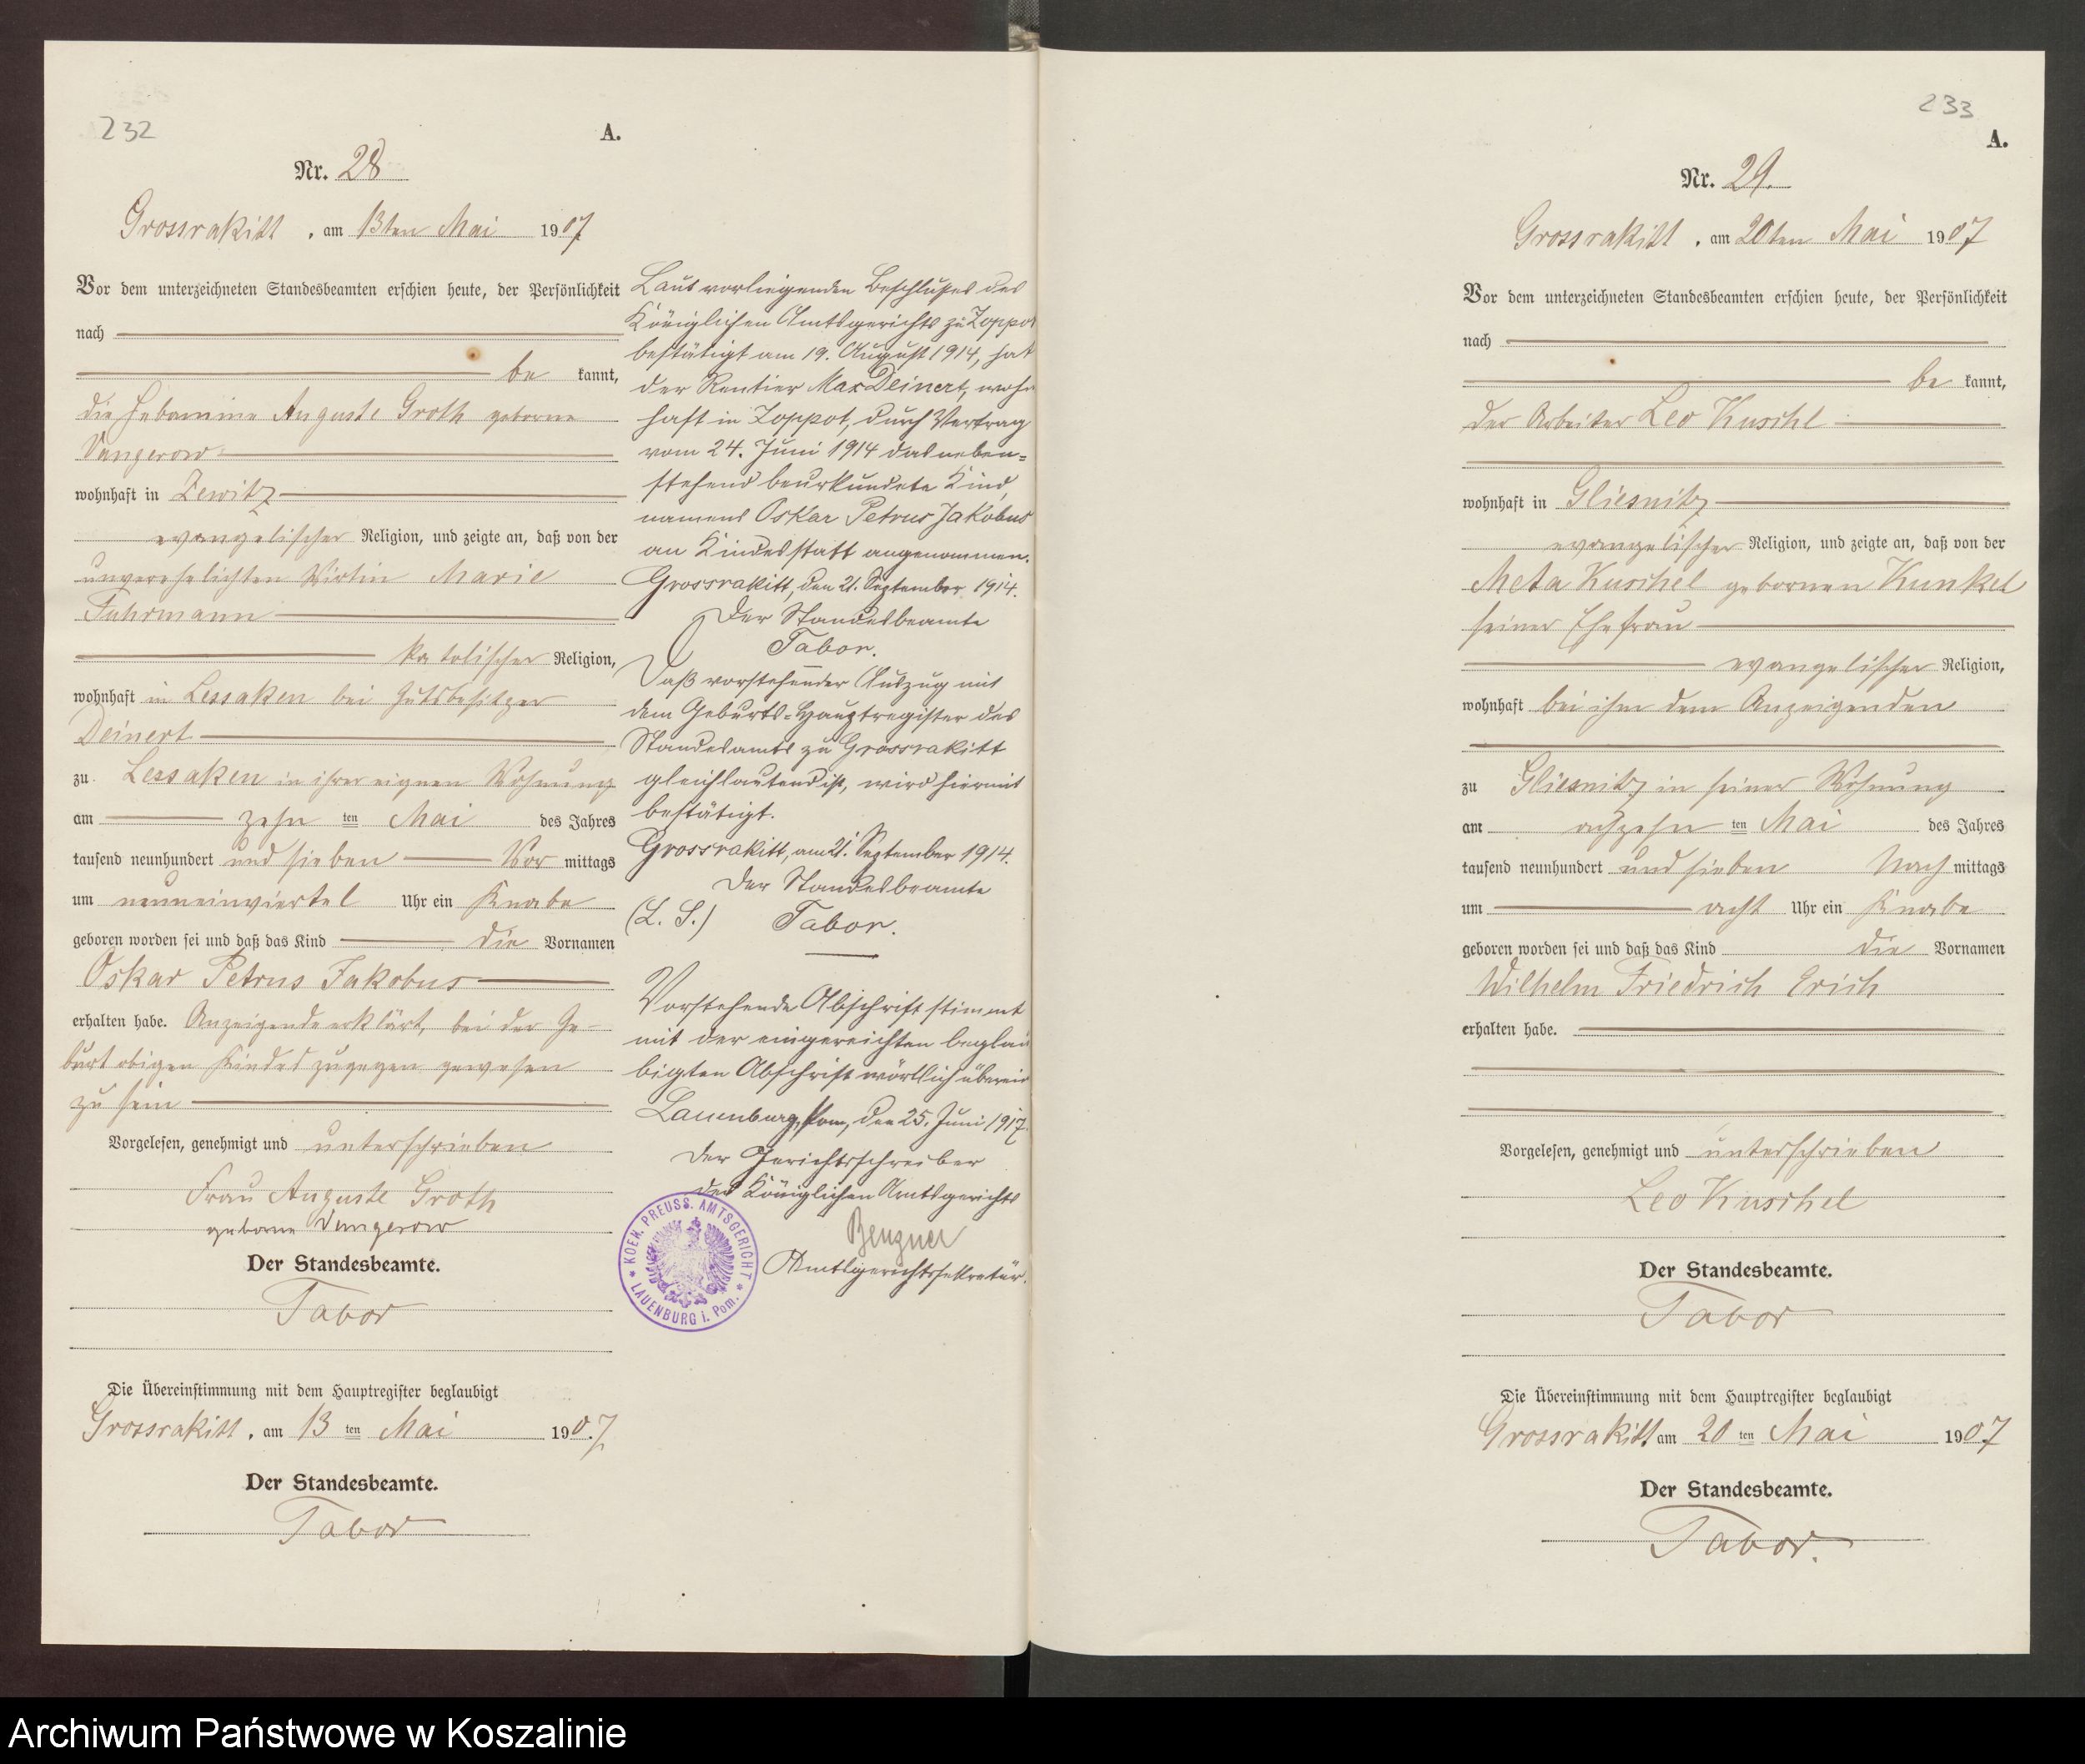 232
A.
Nr. 28
Grossrakitt, am 13ten Mai 1907
Vor dem unterzeichneten Standesbeamten erschien heute, der Persönlichkeit
nach
be kannt,
die Hebamme Auguste Groth geborne
Vangerow
wohnhaft in Zewitz
evangelischer Religion, und zeigte an, daß von der
unverehelichten Wirtin Marie
Fuhrmann
katolischer Religion,
wohnhaft in Lessaken bei Gutsbesitzer
Deinert
zu Lessaken in ihrer eignen Wohnung
am zehn ten Mai des Jahres
tausend neunhundert und sieben Vor mittags
um neuneinviertel Uhr ein Knabe
geboren worden sei und daß das Kind die Vornamen
Oskar Petrus Jakobus
erhalten habe. Anzeigende erklärt, bei der Ge-
burt obigen Kindes zugegen gewesen
zu sein
Vorgelesen, genehmigt und unterschrieben
Frau Auguste Groth
geborne Vangerow
Der Standesbeamte.
Tabor
Die Übereinstimmung mit dem Hauptregister beglaubigt
Grossrakitt, am 13 ten Mai 1907.
Der Standesbeamte.
Tabor
Laut vorliegenden Beschlusses des
Königlichen Amtsgerichts zu Zoppot
bestätigt am 19. August 1914, hat
der Rentier Max Deinert, wohn
haft in Zoppot, durch Vertrag
vom 24. Juni 1914 das neben=
stehend beurkundete Kind,
namens Oskar Petrus Jakobus
an Kindesstatt angenommen.
Grossrakitt, den 21. September 1914.
Der Standesbeamte
Tabor.
Daß vorstehender Auszug mit
dem Geburts=Hauptregister des
Standesamts zu Grossrakitt
gleichlautend ist, wird hiermit
bestätigt.
Grossrakitt, am 21. September 1914.
Der Standesbeamte
(L. S.) Tabor.
Vorstehende Abschrift stimmt
mit der eingereichten beglau
bigten Abschrift wörtlich überein
Lauenburg, Pom, den 25. Juni 1917.
Der Gerichtsschreiber
des Königlichen Amtsgerichts
Amtsgerichtssekretär.
KOEN. PREUSS. AMTSGERICHT
* LAUENBURG i. Pom. *
233
A.
Nr. 29.
Grossrakitt, am 20ten Mai 1907
Vor dem unterzeichneten Standesbeamten erschien heute, der Persönlichkeit
nach
be kannt,
der Arbeiter Leo Kuschel
wohnhaft in Gliesnitz
evangelischer Religion, und zeigte an, daß von der
Meta Kuschel gebornen Kunkel
seiner Ehefrau
evangelischer Religion,
wohnhaft bei ihm dem Anzeigenden
zu Gliesnitz in seiner Wohnung
am achzehn ten Mai des Jahres
tausend neunhundert und sieben Nach mittags
um acht Uhr ein Knabe
geboren worden sei und daß das Kind die Vornamen
Wilhelm Friedrich Erich
erhalten habe.
Vorgelesen, genehmigt und unterschrieben
Leo Kuschel
Der Standesbeamte.
Tabor
Die Übereinstimmung mit dem Hauptregister beglaubigt
Grossrakitt am 20 ten Mai 1907
Der Standesbeamte.
Tabor.
Archiwum Państwowe w Koszalinie